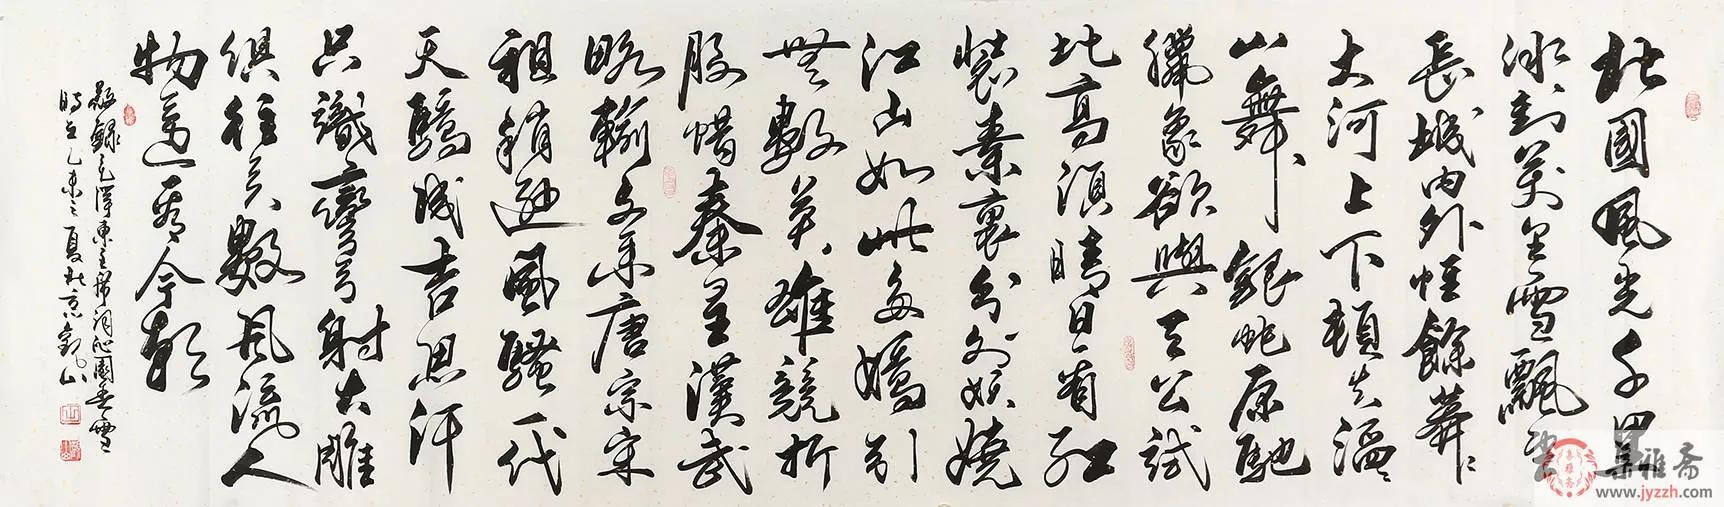 北國風光千里
冰封萬里雪飄望
長城內外惟餘莽〻
大河上下頓失滔〻
山舞銀蛇原馳
臘象欲與天公試
比高須晴日看紅
裝素裹分外妖嬈
江山如此多嬌引
無數英雄競折
腰惜秦皇漢武
略輸文采唐宗宋
祖稍遜風騷一代
天驕成吉思汗
只識彎弓射大雕
俱往矣數風流人
物還看今朝
敬錄毛澤東主席詞沁園春雪
時在乙未之夏北京觀山
集雅斋
www.jyzzh.com